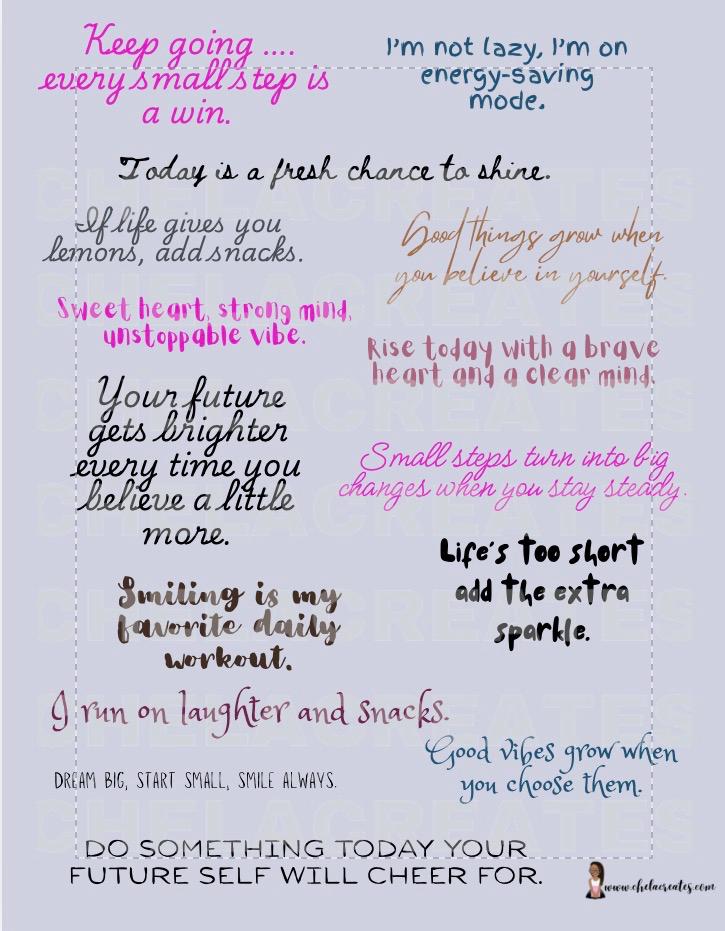 Keep going ....
every small step is
a win.
I'm not lazy, I'm on
energy-saving
mode.
Today is a fresh chance to shine.
If life gives you
lemons, add snacks.
Good things grow when
you believe in yourself.
Sweet heart, strong mind,
unstoppable vibe.
Rise today with a brave
heart and a clear mind.
Your future
gets brighter
every time you
believe a little
more.
Small steps turn into big
changes when you stay steady.
Life's too short
add the extra
sparkle.
Smiling is my
favorite daily
workout.
I run on laughter and snacks.
Good vibes grow when
you choose them.
DREAM BIG, START SMALL, SMILE ALWAYS.
DO SOMETHING TODAY YOUR
FUTURE SELF WILL CHEER FOR.
www.chelacreates.com
CHELACREATES
CHELACREATES
CHELACREATES
CHELACREATES
CHELACREATES
CHELACREATES
CHELACREATES